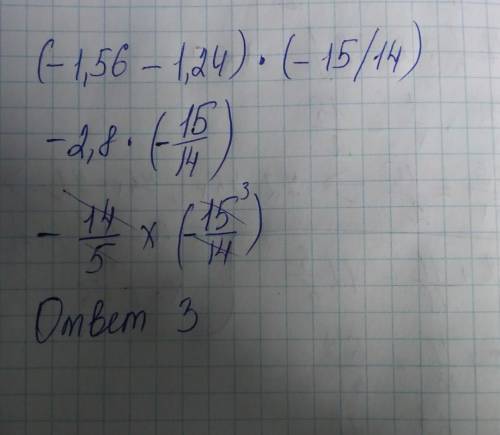 (-1,56 - 1,24) · (- 15/14)
-2,8 · (- 15/14)
- 14/5 x (- 15/14) 3
Ответ 3